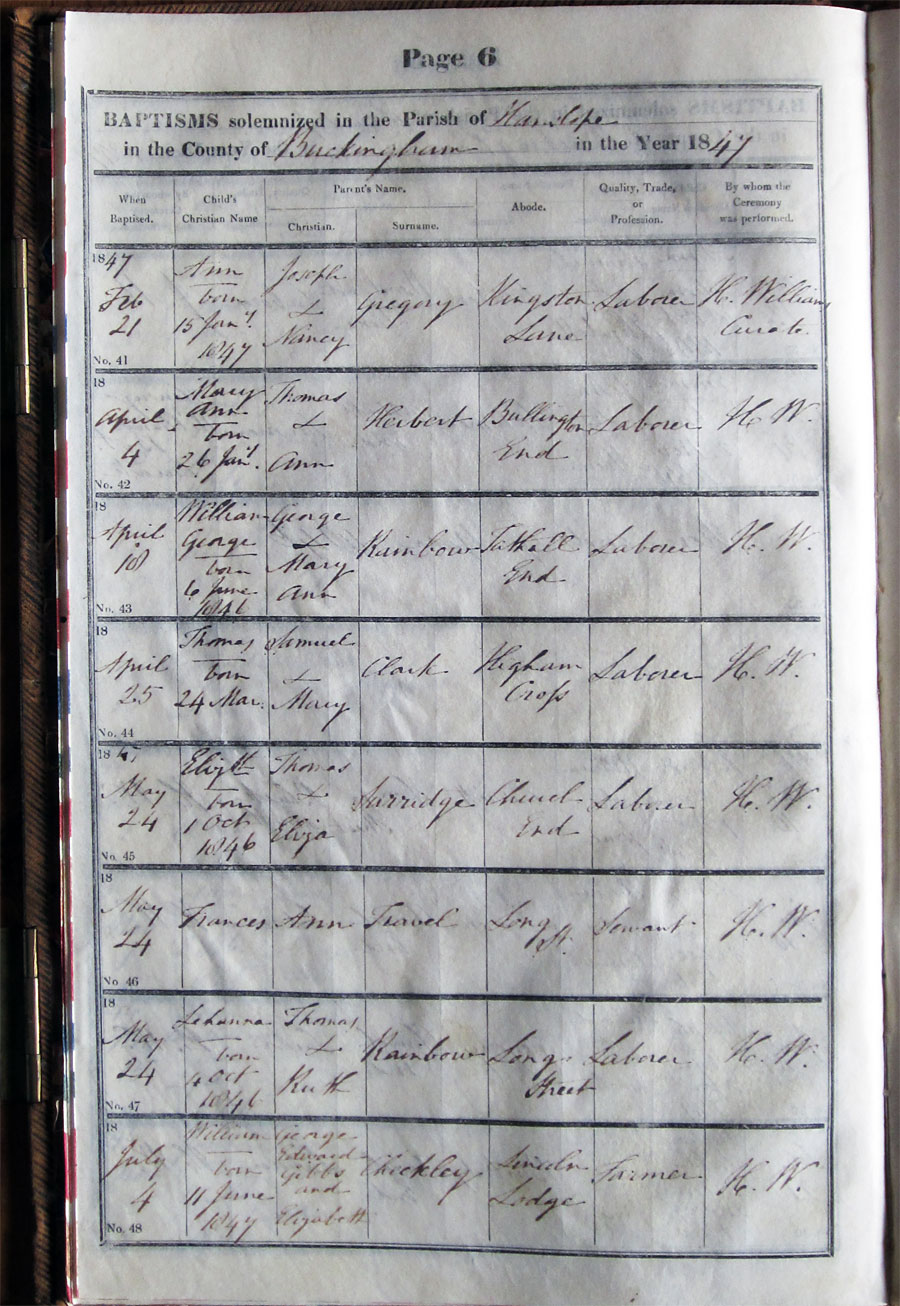 Page 6
BAPTISMS solemnized in the Parish of Hanslope
in the County of Buckingham in the Year 1847
When Baptised.
Child's Christian Name
Parent's Name.
Christian.
Surname.
Abode.
Quality, Trade, or Profession.
By whom the Ceremony was performed.
1847
Feb
21
No. 41
Ann
born
15 Jany.
1847
Joseph
&
Nancy
Gregory
Kingston
Lane
Laborer
H. Williams
Curate.
18
April
4
No. 42
Mary
Ann
born
26 Jany.
Thomas
&
Ann
Herbert
Bullington
End
Laborer
H. W.
18
April
18
No. 43
William
George
born
6 June
1846
George
&
Mary
Ann
Rainbow
Tathall
End
Laborer
H. W.
18
April
25
No. 44
Thomas
born
24 Mar.
Samuel
&
Mary
Clark
Higham
Cross
Laborer
H. W.
1847
May
24
No. 45
Elizth
born
1 Oct
1846
Thomas
&
Eliza
Surridge
Church
End
Laborer
H. W.
18
May
24
No. 46
Frances
Ann
Travel
Long
St.
Servant
H. W.
18
May
24
No. 47
born
4 Oct
1846
Thomas
&
Ruth
Rainbow
Long
Street
Laborer
H. W.
18
July
4
No. 48
William
born
11 June
1847
George
Edward
Gibbs
and
Elizabeth
Checkley
Lincoln
Lodge
Farmer
H. W.